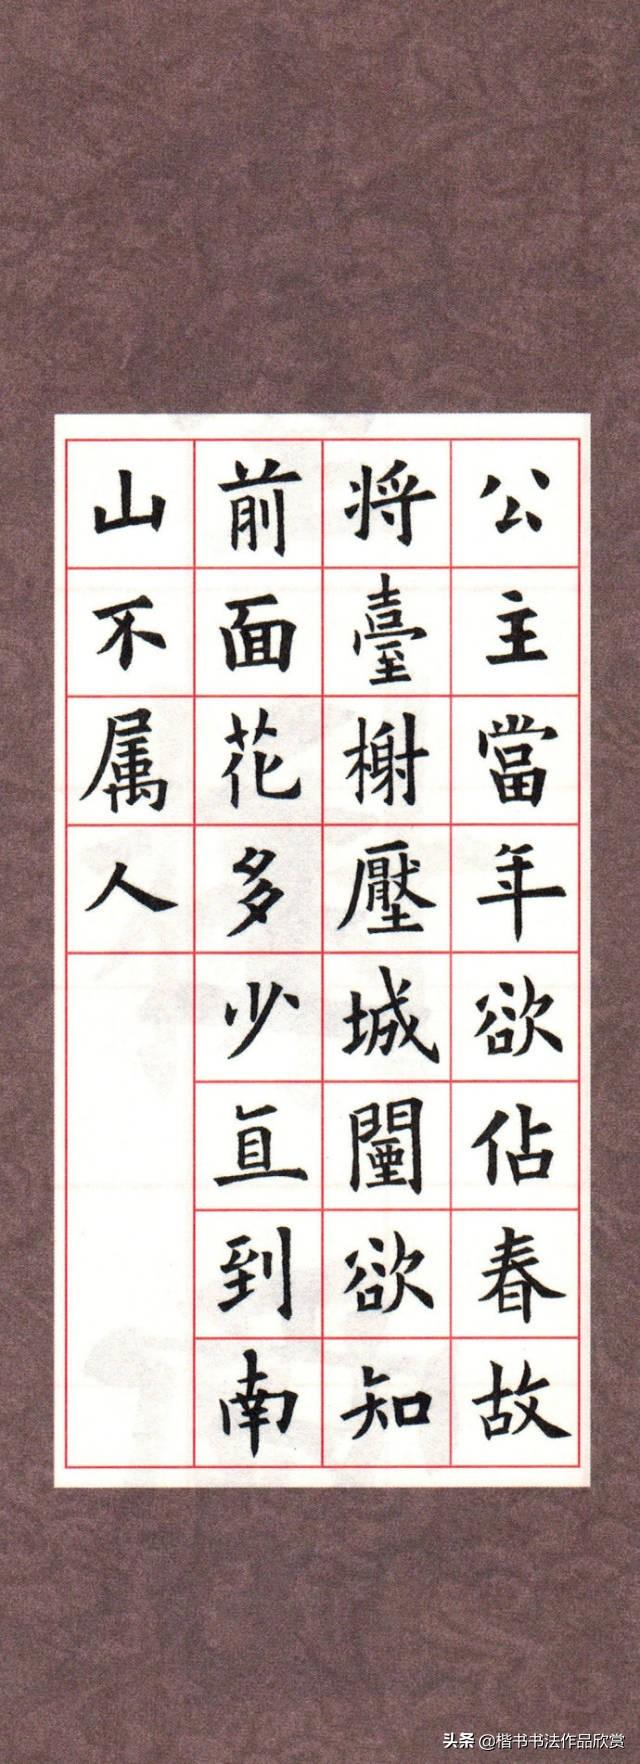 公主當年欲佔春故
將臺榭壓城闉欲知
前面花多少直到南
山不属人
头条 @楷书书法作品欣赏